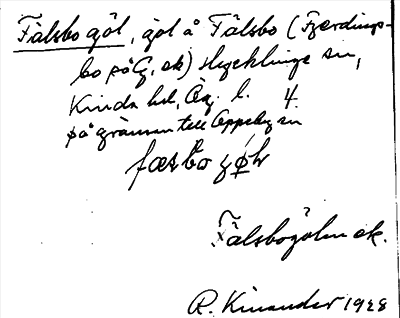 Fålsbo göl, göl å Fålsbo (Fjerdings-
bo på G. ek) Hycklinge sn,
Kinda hd, Ög. l. 4.
på gränsen till Oppeby sn
Fålsbogölen ek.
R. Kinander 1928